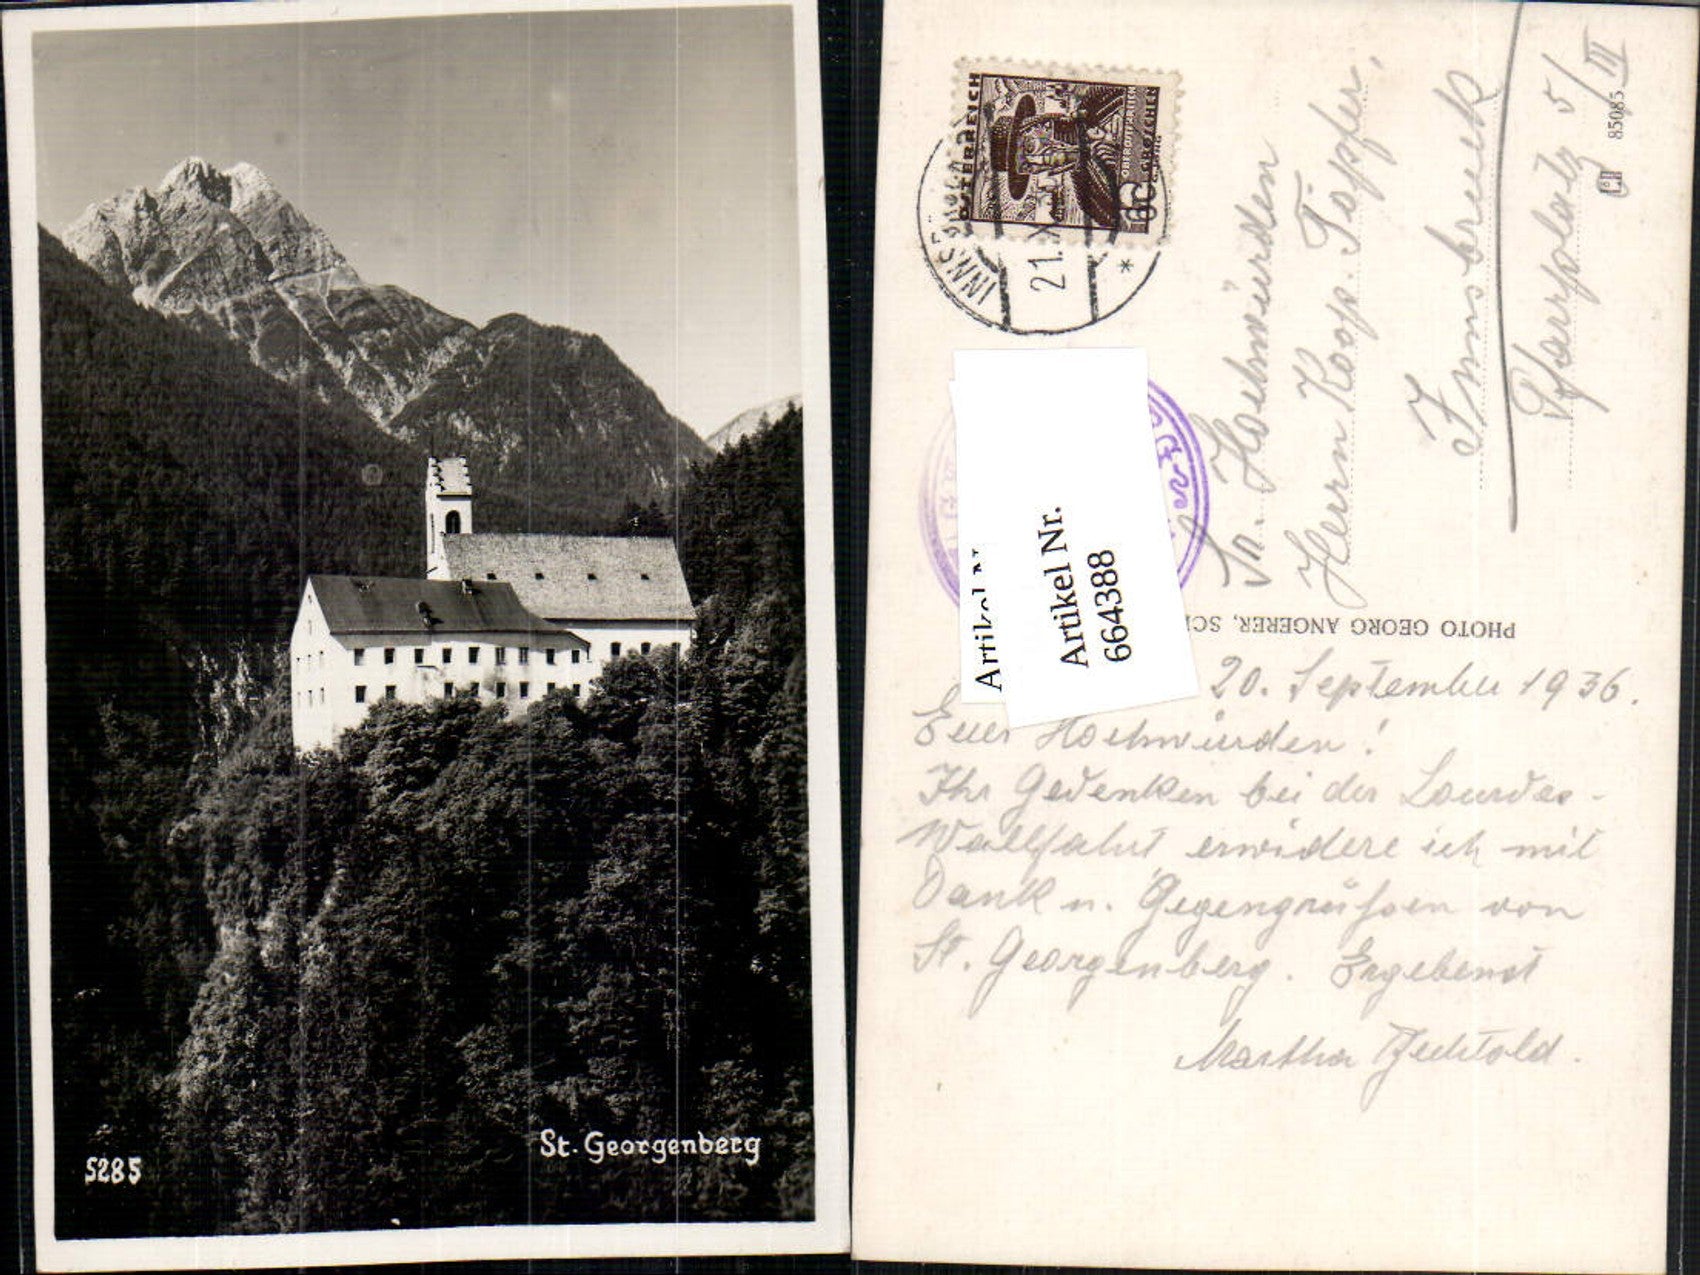 St. Georgenberg
5285
ÖSTERREICH
OBERÖSTERREICH
GROSCHEN
INNSBRUCK
21.
*
Artikel Nr.
Artikel Nr.
664388
Sr. Hochwürden
Herrn Koop. Töpfer,
Innsbruck
Pfarrplatz 5/III
85085
PHOTO GEORG ANGERER,
20. September 1936.
Euer Hochwürden!
Ihr Gedenken bei der Lourdes-
Wallfahrt erwidere ich mit
Dank u. Gegengrüßen von
St. Georgenberg. Ergebenst
Martha Bechtold.